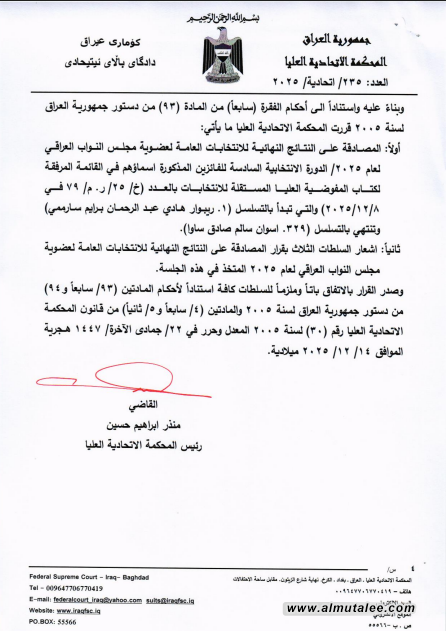 بسم الله الرحمن الرحيم
جمهورية العراق
المحكمة الاتحادية العليا
العدد: ٢٣٥/ اتحادية/ ٢٠٢٥
كۆماری عیراق
دادگای باڵای ئیتیحادی
وبناءً عليه واستناداً الى أحكام الفقرة (سابعاً) من المادة (٩٣) من دستور جمهورية العراق
لسنة ٢٠٠٥ قررت المحكمة الاتحادية العليا ما يأتي:
أولاً: المصادقة على النتائج النهائية للانتخابات العامة لعضوية مجلس النواب العراقي
لعام ٢٠٢٥/ الدورة الانتخابية السادسة للفائزين المذكورة اسماؤهم في القائمة المرفقة
لكتاب المفوضية العليا المستقلة للانتخابات بالعدد (خ/ ٢٥/ ر. م/ ٧٩ في
٢٠٢٥/١٢/٨) والتي تبدأ بالتسلسل (١. ريبوار هادي عبد الرحمان برايم سارممي)
وتنتهي بالتسلسل (٣٢٩. اسوان سالم صادق ساوا).
ثانياً: اشعار السلطات الثلاث بقرار المصادقة على النتائج النهائية للانتخابات العامة لعضوية
مجلس النواب العراقي لعام ٢٠٢٥ المتخذ في هذه الجلسة.
وصدر القرار بالاتفاق باتاً وملزماً للسلطات كافة استناداً لأحكام المادتين (٩٣/ سابعاً و ٩٤)
من دستور جمهورية العراق لسنة ٢٠٠٥ والمادتين (٤/ سابعاً و ٥/ ثانياً) من قانون المحكمة
الاتحادية العليا رقم (٣٠) لسنة ٢٠٠٥ المعدل وحرر في ٢٢/ جمادى الآخرة/ ١٤٤٧ هجرية
الموافق ١٤/ ١٢/ ٢٠٢٥ ميلادية.
القاضي
منذر ابراهيم حسين
رئيس المحكمة الاتحادية العليا
٤ س/
Federal Supreme Court – Iraq- Baghdad
Tel – 009647706770419
E-mail: federalcourt_iraq@yahoo.com suits@iraqfsc.iq
Website: www.iraqfsc.iq
PO.BOX: 55566
المحكمة الاتحادية العليا . العراق . بغداد . الكرخ. نهاية شارع الزيتون. مقابل ساحة الاحتفالات
هاتف – ٠٠٩٦٤٧٧٠٦٧٧٠٤١٩
ص . ب – ٥٥٥٦٦
www.almutalee.com